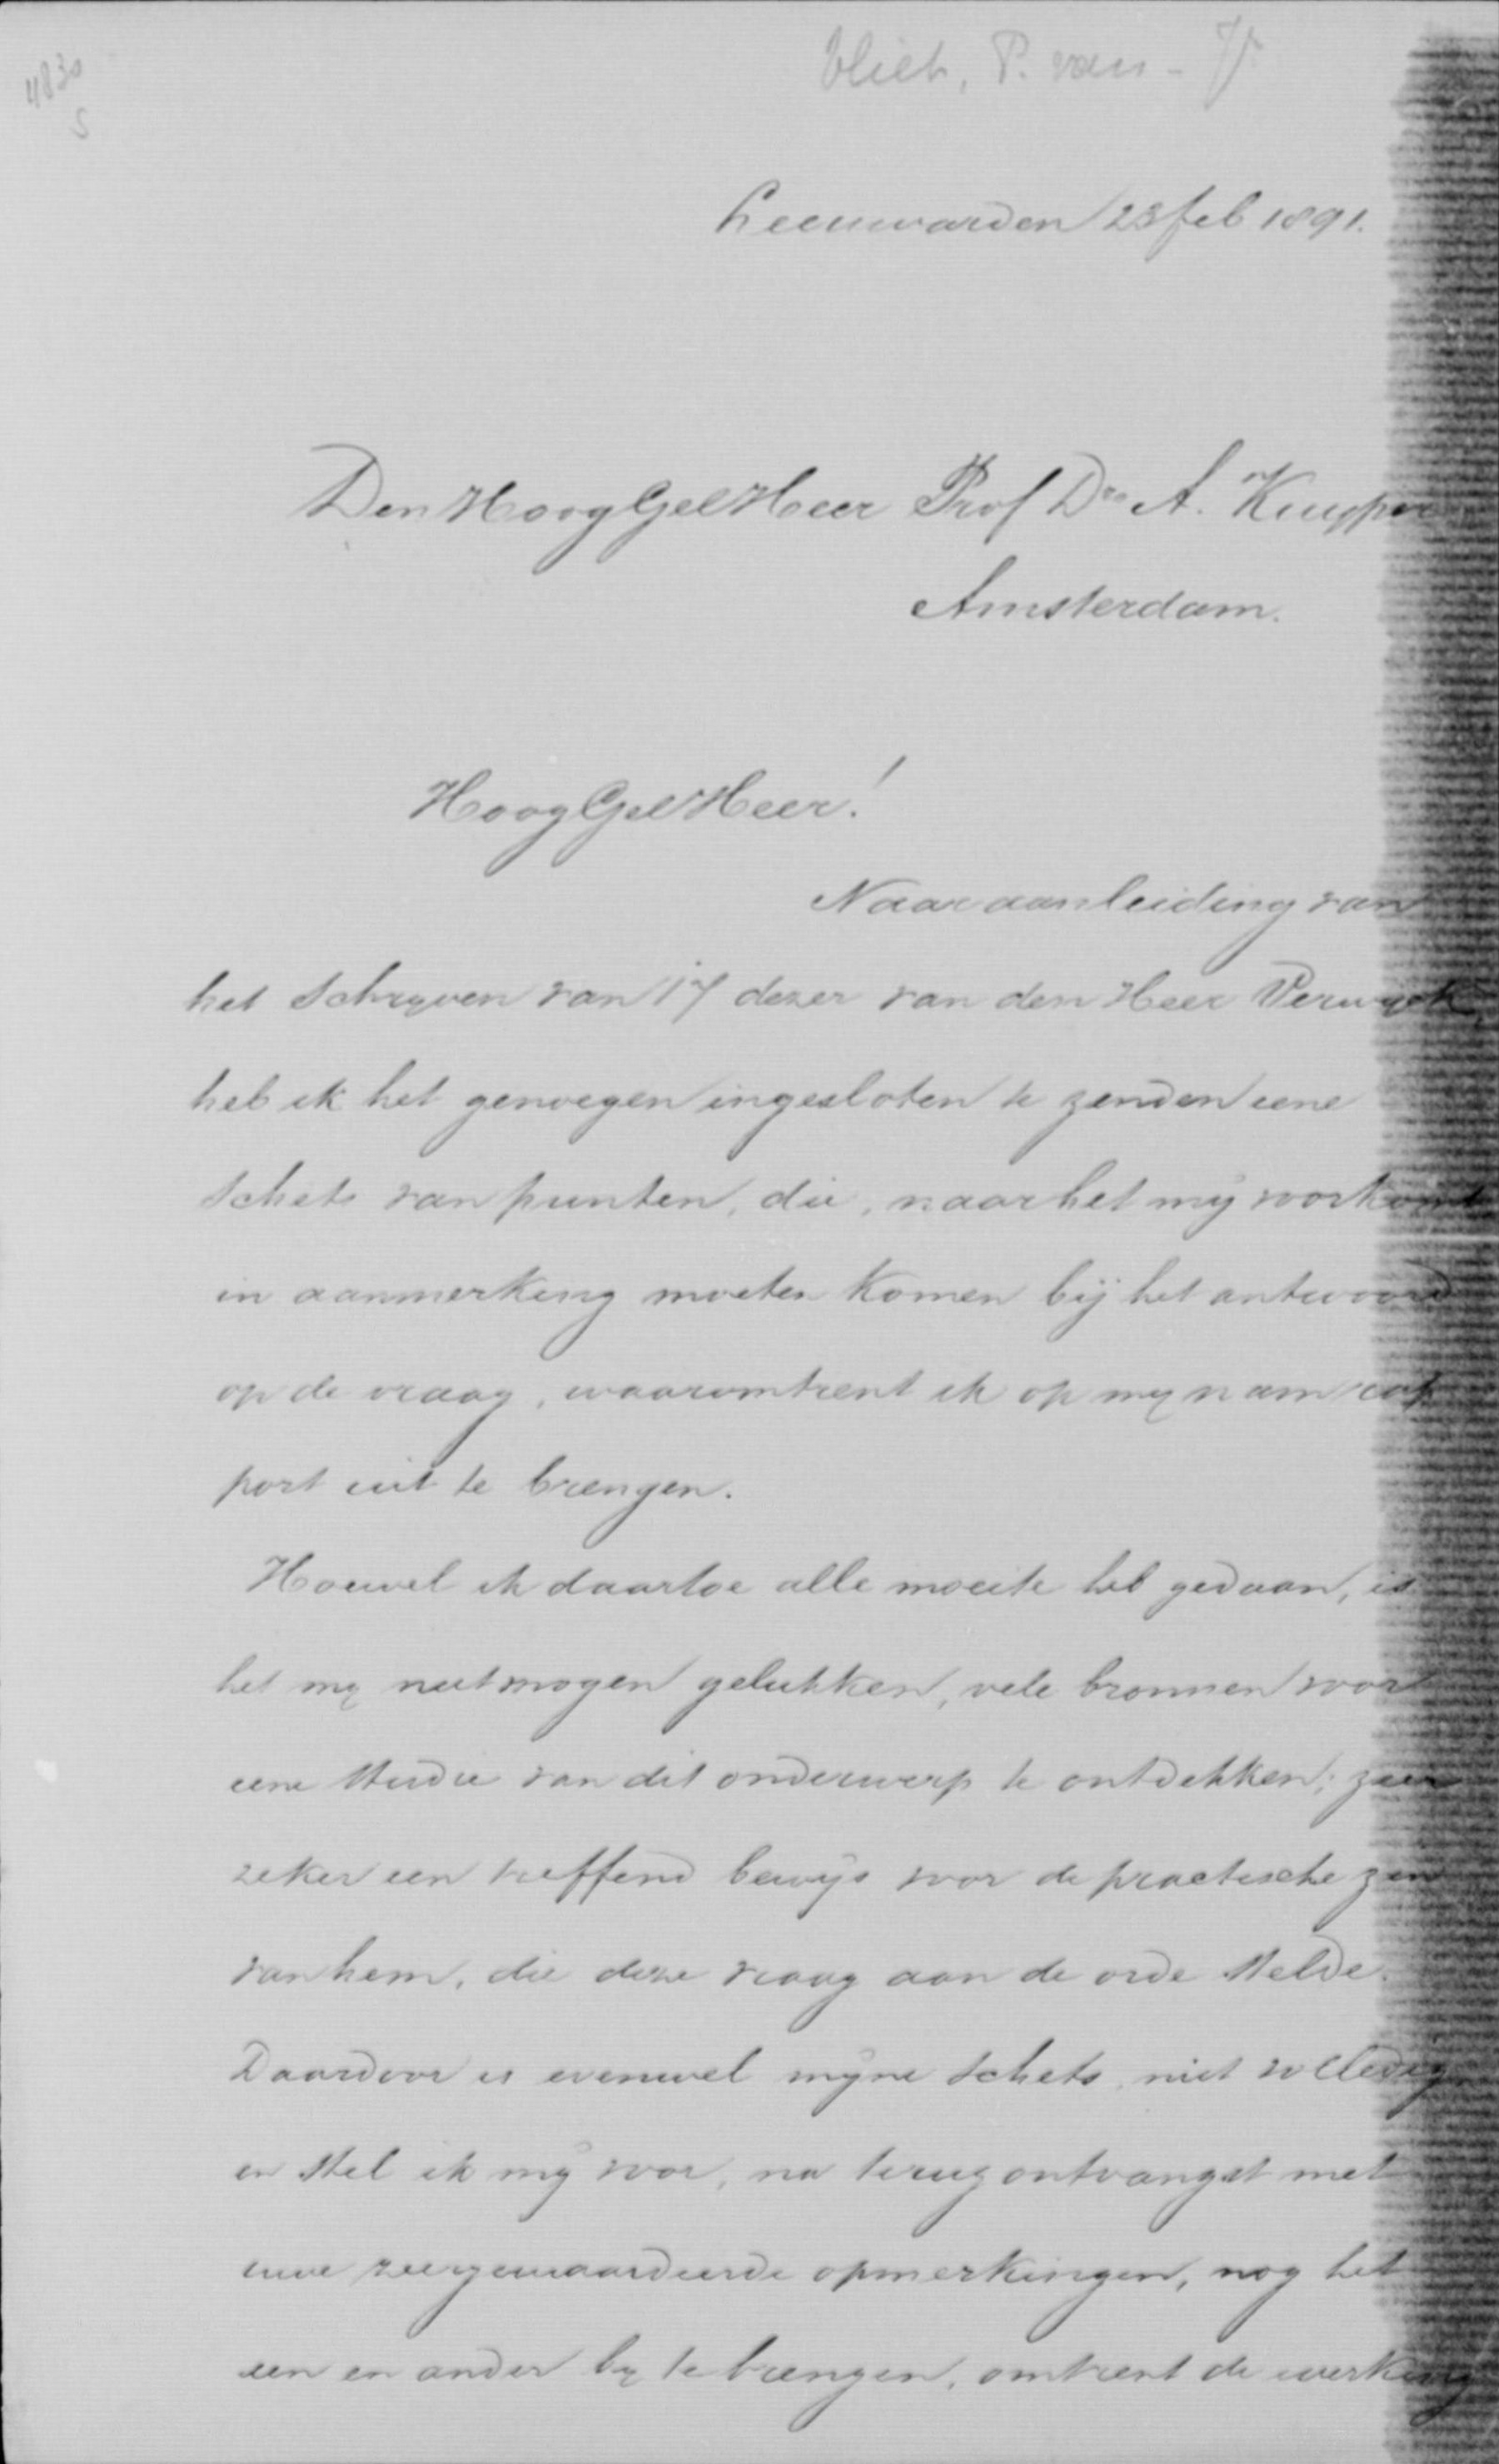 4830
5
Vliet, P. van - Jr
Leeuwarden 23 feb 1891.
Den HoogGel Heer Prof Dr A. Kuyper
Amsterdam.
HoogGel Heer!
Naar aanleiding van
het schrijven van 17 dezer van den Heer
heb ik het genoegen ingesloten te zenden eene
schets van punten, die, naar het mij voorkomt
in aanmerking moeten komen bij het antwoord
op de vraag, waaromtrent ik op mij nam rap
port uit te brengen.
Hoewel ik daartoe alle moeite heb gedaan, is
het mij niet mogen gelukken, vele bronnen voor
eene studie van dit onderwerp te ontdekken; zeer
zeker een treffend bewijs voor de practische zin
van hem, die deze vraag aan de orde stelde.
Daardoor is evenwel mijne schets niet volledig
en stel ik mij voor, na terugontvangst met
uwe zeergewaardeerde opmerkingen, nog het
een en ander bij te brengen, omtrent de werking